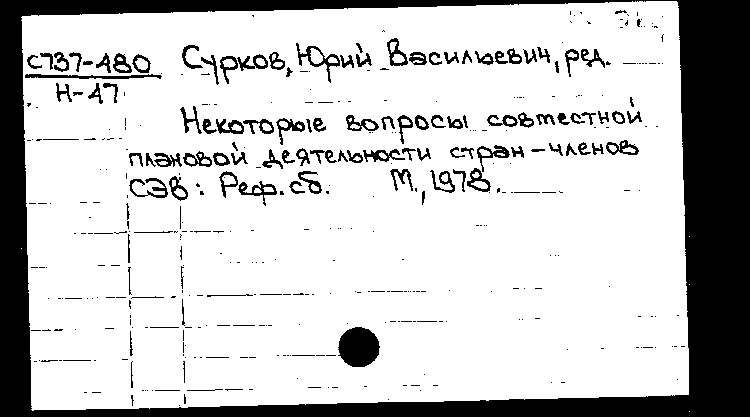 С737-480 Сурков, Юрий Васильевич, ред.
Н-47
Некоторые вопросы совместной
плановой деятельности стран-членов
СЭВ: Реф. сб. М., 1978.